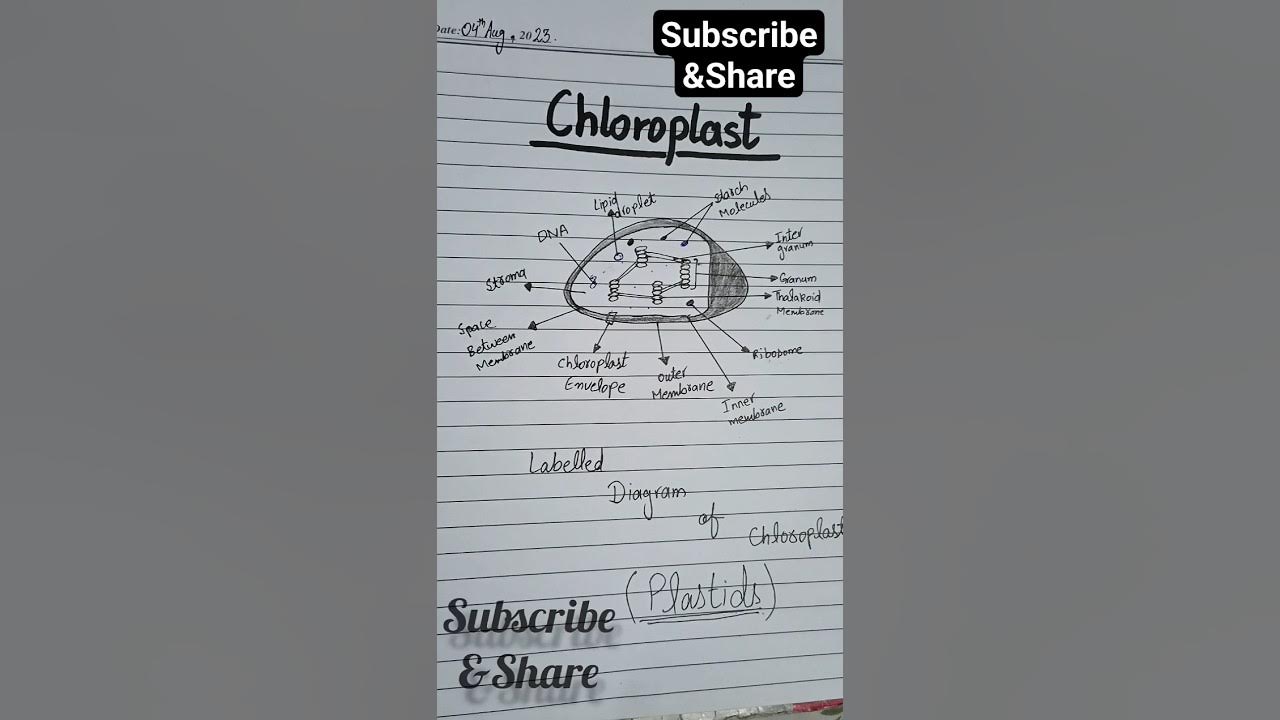 Date: 04th Aug, 2023.
Subscribe
&Share
Chloroplast
Lipid
droplet
Starch
Molecules
DNA
Inter
granum
Stroma
Granum
Thalakoid
Membrane
Space
Between
Membrane
Ribosome
Chloroplast
Envelope
outer
Membrane
Inner
membrane
Labelled
Diagram
of
Chloroplast
(Plastids)
Subscribe
&Share